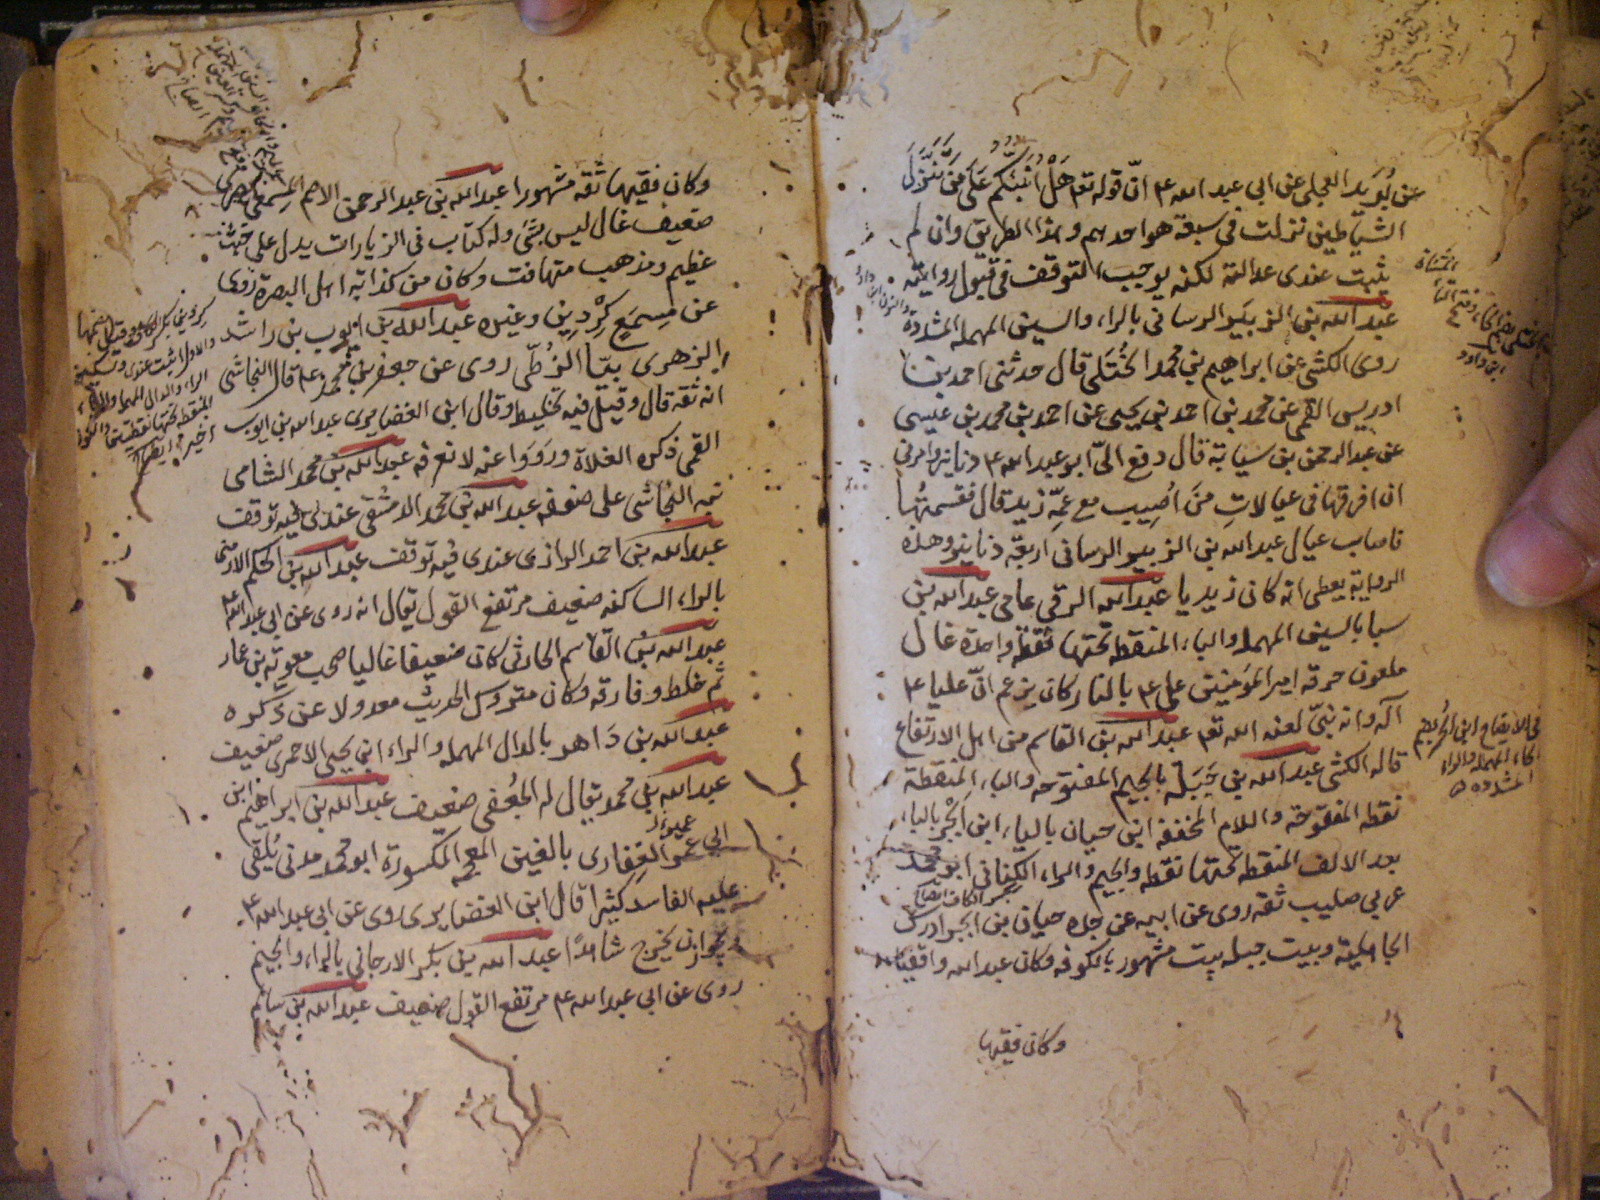 عن بُرَيد العجلي عن ابي عبد الله ع ان قوله تعه هَلْ اُنَبِّئُكُم عَلَى مَن تَنَزَّلَ
الشياطين نزلت في سبعة هو احدهم وهذا الطريق وان لم
يثبت عندي عدالته لكنه يوجب التوقف في قبول روايته
عبد الله بن الزبير الرساني بالراء والسين المهملة المشددة
روى الكشي عن ابراهيم بن محمد الخُتَلي قال حدثني احمد بن
ادريس القمي عن محمد بن احمد بن يحيى عن احمد بن محمد بن عيسى
عن عبد الرحمن بن سيابة قال دفع اليّ ابو عبد الله ع دنانير وامرني
ان افرقها في عيالاتِ مَن اُصِيب مع عمّه زيد قال فقسمتُها
فاصاب عيال عبد الله بن الزبير الرساني اربعة دنانير وهذه
الرواية يعطى انه كان زيديا عبد الله الرقي عامي عبد الله بن
سبا بالسين المهملة والباء المنقطة تحتها نقطة واحدة غال
ملعون حرقه امير المؤمنين علي ع بالنار كان يزعم انّ عليا ع
اله وانه نبيّ لعنه الله تعه عبد الله بن القاسم من اهل الارتفاع
قاله الكشي عبد الله بن جَبَلَة بالجيم المفتوحة والباء المنقطة
نقطه المفتوحة واللام المخففة ابن حيان بالياء ابن ابجر بالباء
بعد الالف المنقطة تحتها نقطه والجيم والراء الكناني ابو محمد
عربي صليب ثقة روى عن ابيه عن جده حيان بن ابجر ادرك
الجاهلية وبيت جبله بيت مشهور بالكوفة وكان عبد الله واقفيا
وكان فقيها
وكان فقيها ثقة مشهورا عبد الله بن عبد الرحمن الاصم المِسْمَعي بصري
ضعيف غال ليس بشئ وله كتاب في الزيارات يدل على خبث
عظيم ومذهب متهافت وكان من كذابة اهل البصرة روى
عن مِسمَع كِرْدِين وغيره عبد الله بن ايوب بن راشد
الزهري بيّاع الزُطّي روى عن جعفر بن محمد ع قال النجاشي
انه ثقه قال وقيل فيه تخليط وقال ابن الغضايري عبد الله بن ايوب
القمي ذكره الغلاة ورَوَوا عنه لا نعرفه عبد الله بن محمد الشامي
نبه النجاشي على ضعفه عبد الله بن محمد الدمشقي عندي فيه توقف
عبد الله بن احمد الرازي عندي فيه توقف عبد الله بن الحكم الارمني
بالراء الساكنه ضعيف مرتفع القول يقال انه روى عن ابي عبد الله ع
عبد الله بن القاسم الحارثي كان ضعيفا غاليا صحب معوية بن عمار
ثم خلط وفارقه وكان متروك الحديث معدولا عن ذكره
عبد الله بن داهر بالدال المهمله والراء ابن يحيى الاحمري ضعيف
عبد الله بن محمد يقال له الجُعْفي ضعيف عبد الله بن ابراهيم ابن
ابي عمرو الغفاري بالغين المعجمة المكسورة ابو محمد مدني يُلقى
عليه الفاسد كثيرا قال ابن الغضايري روى عن ابي عبد الله ع
ويجوز ان يخرج شاهدًا عبد الله بن بكر الارجاني بالراء والجيم
روى عن ابي عبد الله ع مرتفع القول ضعيف عبد الله بن سالم